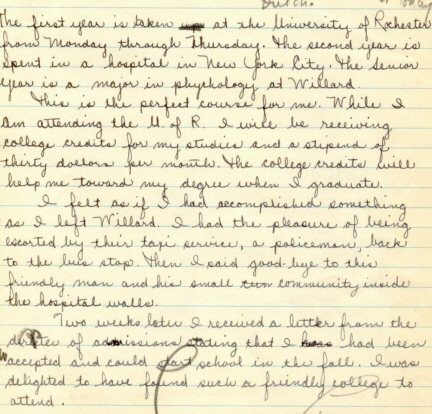 Dutch. Today
The first year is taken up at the University of Rochester
from Monday through Thursday. The second year is
spent in a hospital in New York City. The senior
year is a major in phychology at Willard.
This is the perfect course for me. While I
am attending the U. of R. I will be receiving
college credits for my studies and a stipend of
thirty doctors per month. The college credits will
help me toward my degree when I graduate.
I felt as if I had accomplished something
as I left Willard. I had the pleasure of being
escorted by their taxi service, a policeman, back
to the bus stop. Then I said good-bye to this
friendly man and his small town community inside
the hospital walls.
Two weeks later I received a letter from the
director of admissions stating that I was had been
accepted and could start school in the fall. I was
delighted to have found such a friendly college to
attend.